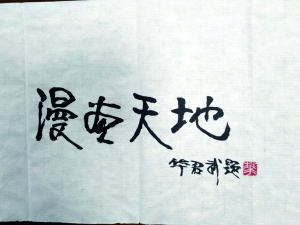 漫画天地
华君武题